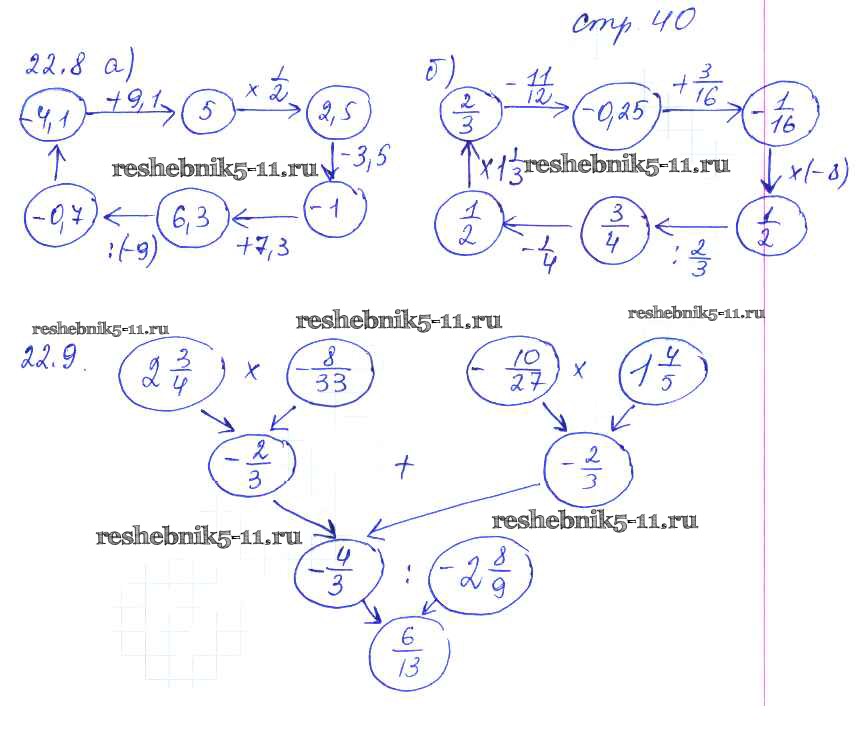 стр. 40
22.8 а)
-4,1 +9,1 5 × 1/2 2,5
-3,5
-0,7 :(-9) 6,3 +7,3 -1
б)
2/3 - 11/12 -0,25 + 3/16 - 1/16
× 1 1/3 ×(-8)
1/2 - 1/4 3/4 : 2/3 1/2
reshebnik5-11.ru reshebnik5-11.ru
reshebnik5-11.ru reshebnik5-11.ru reshebnik5-11.ru
22.9.
2 3/4 × - 8/33 - 10/27 × 1 4/5
- 2/3 + - 2/3
reshebnik5-11.ru reshebnik5-11.ru
- 4/3 : -2 8/9
6/13